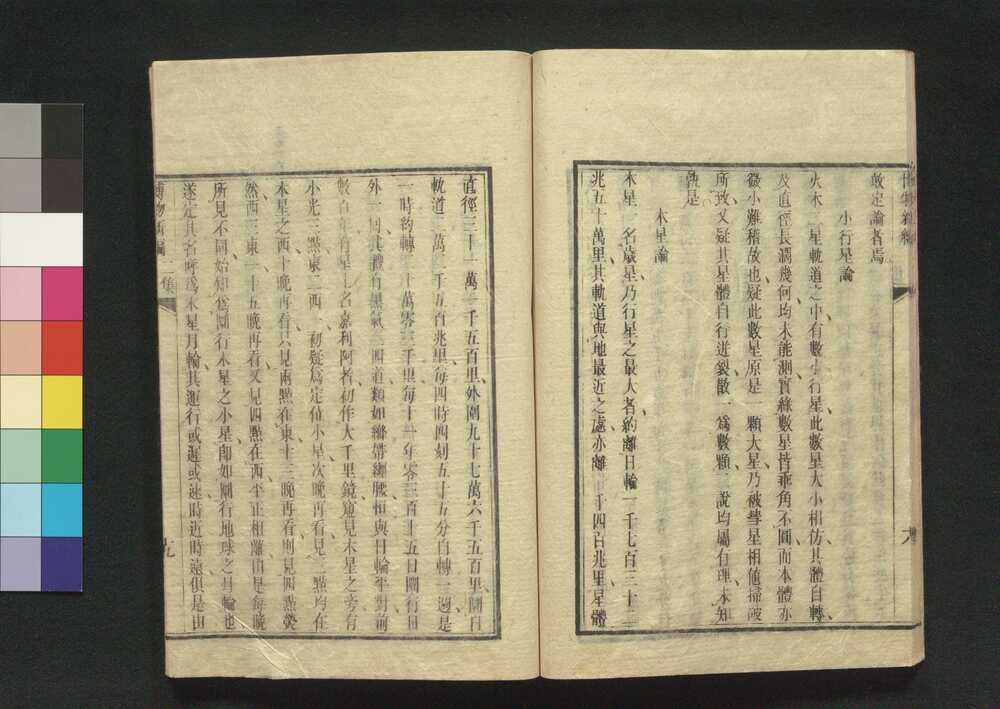 敢定論者焉
小行星論
火木二星軌道之中有數小行星此數星大小相仿其體自轉
及直徑長濶幾何均未能測實緣數星皆乖角不圓而本體亦
微小難稽故也疑此數星原是一顆大星乃被彗星相値掃破
所致又疑其星體自行迸裂散為數顆二說均屬有理未知
孰是
木星論
木星一名歲星乃行星之最大者約離日輪一千七百三十三
兆五十萬里其軌道與地最近之處亦離一千四百兆里星體
直徑三十一萬一千五百里外圍九十七萬六千五百里圜日
軌道一萬千五百兆里每四時四刻五十五分自轉一週是
一時約轉二十萬零三千里每十一年零三百十五日圜行日
外一回其體有黑氣三四道類如縧帶綁腰恒與日輪平對前
數百年有星士名嘉利阿者初作大千里鏡窺見木星之旁有
小光三點東二西一初疑為定位小星次晚再看見三點均在
木星之西十晚再看只見兩點在東十三晚再看則見四點熒
然西三東一十五晚再看又見四點在西平正相離由是每晚
所見不同始知為圜行木星之小星卽如圜行地球之月輪也
遂定其名呼為木星月輪其運行或遲或速時近時遠俱是由
博物新編 二集
九